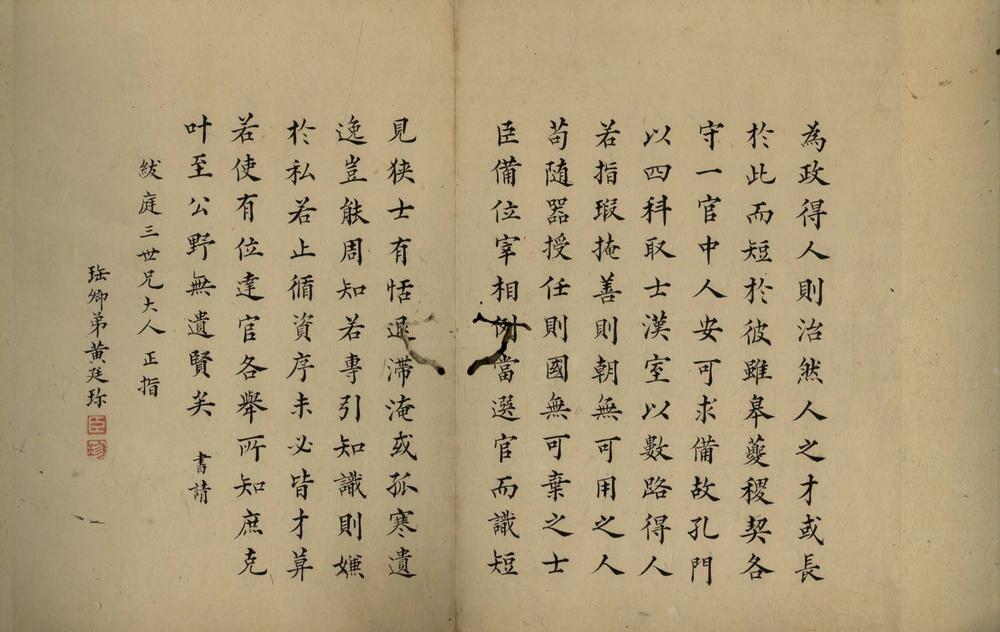 為政得人則治然人之才或長
於此而短於彼雖皋夔稷契各
守一官中人安可求備故孔門
以四科取士漢室以數路得人
若指瑕掩善則朝無可用之人
苟隨器授任則國無可棄之士
臣備位宰相例當選官而識短
見狹士有恬退滯淹或孤寒遺
逸豈能周知若專引知識則嫌
於私若止循資序未必皆才莫
若使有位達官各舉所知庶克
叶至公野無遺賢矣 書請
紱庭三世兄大人 正指
弟黃廷珍
臣珍